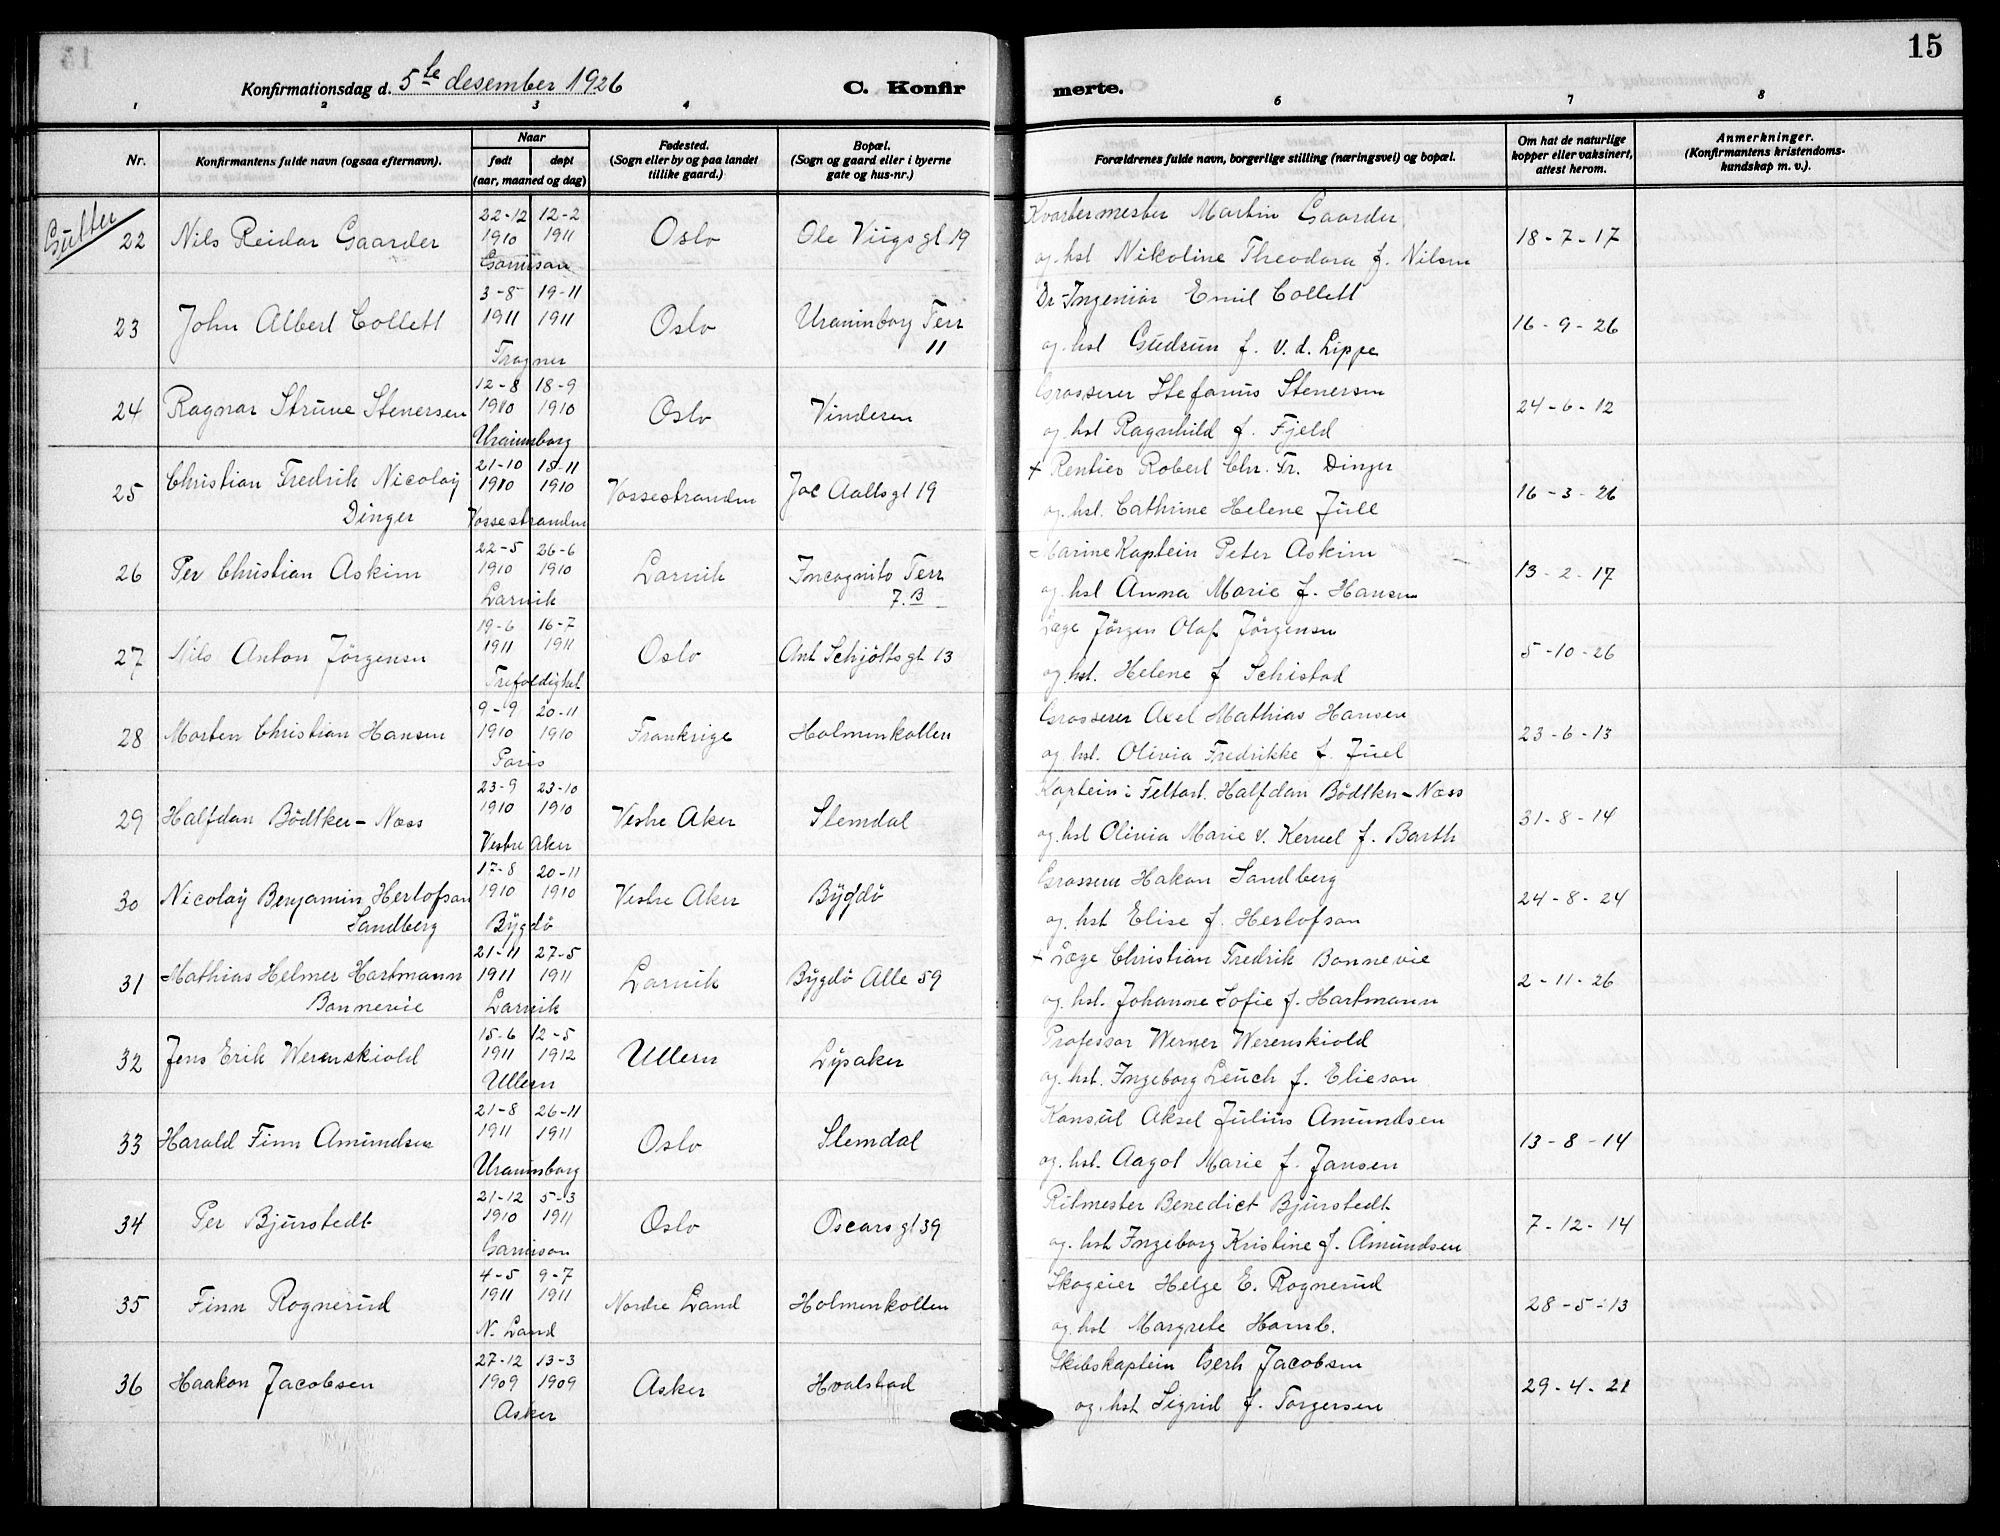 15
Konfirmationsdag d. 5te desember 1926
C. Konfir merte.
1 2 3 4 6 7 8
Nr.
Konfirmantens fulde navn (ogsaa efternavn).
Naar
født døpt
(aar, maaned og dag)
Fødested.
(Sogn eller by og paa landet
tillike gaard.)
Bopæl.
(Sogn og gaard eller i byerne
gate og hus-nr.)
Forældrenes fulde navn, borgerlige stilling (næringsvei) og bopæl.
Om hat de naturlige
kopper eller vaksinert,
attest herom.
Anmerkninger.
(Konfirmantens kristendoms-
kundskap m. v.).
Gutter
22 Nils Reidar Gaarder 22-12 1910 12-2 1911 Garnison Oslo Ole Viigs gt 19 Kvartermester Martin Gaarder
og hst Nikoline Theodora f. Nilsen 18-7-17
23 John Albert Collett 3-8 1911 19-11 1911 Frogner Oslo Uranienborg Terr 11 Dr-Ingeniør Emil Collett
og hst Gudrun f. v. d. Lippe 16-9-26
24 Ragnar Struve Stenersen 12-8 1910 18-9 1910 Uraninborg Oslo Vinderen Grosserer Stefanus Stenersen
og hst Ragnhild f. Fjeld 24-6-12
25 Christian Fredrik Nicolay
Dinger 21-10 1910 15-11 1910 Vossestranden Vossestranden Jac Aallsgt 19 + Rentier Robert Chr. Fr. Dinger
og hst. Cathrine Helene Juell 16-3-26
26 Per Christian Askim 22-5 1910 26-6 1910 Larvik Larvik Incognito Terr 7.B Marine Kaptein Peter Askim
og hst Anna Marie f. Hansen 13-2-17
27 Nils Anton Jörgensen 19-6 1911 16-7 1911 Trefoldighet Oslo Ant Schjöttsgt 13 Læge Jörgen Olaf Jörgensen
og hst. Helene f Schistad 5-10-26
28 Morten Christian Hansen 9-9 1910 20-11 1910 Paris Frankrige Holmenkollen Grosserer Axel Mathias Hansen
og hst. Olivia Fredrikke f. Juel 23-6-13
29 Halfdan Bödtker-Næss 23-9 1910 23-10 1910 Vestre Aker Vestre Aker Slemdal Kaptein i Feltart. Halfdan Bödtker-Næss
og hst Olivia Marie v. f. Barth 31-8-14
30 Nicolay Benjamin Herlofson
Sandberg 17-8 1910 20-11 1910 Bygdö Vestre Aker Bygdö Grosserer Hakon Sandberg
og hst Elise f. Herlofson 24-8-24
31 Mathias Helmer Hartmann
Bonnevie 21-11 1911 27-5 1911 Larvik Larvik Bygdö Alle 59 + Læge Christian Fredrik Bonnevie
og hst. Johanne Sofie f. Hartmann 2-11-26
32 Jens Erik Werenskiold 15-6 1911 12-5 1912 Ullern Ullern Lysaker Professor Werner Werenskiold
og hst. Ingeborg Leuch f. Elieson
33 Harald Finn Amundsen 21-8 1911 26-11 1911 Uraninsborg Oslo Slemdal Konsul Aksel Julius Amundsen
og hst. Aagot Marie f. Jansen 13-8-14
34 Per Bjurstedt 21-12 1910 5-3 1911 Garnison Oslo Oscars gt 39 Ritmester Benedict Bjurstedt
og hst Ingeborg Kristine f. Amundsen 7-12-14
35 Finn Rognerud 4-5 1911 9-7 1911 N. Land Nordre Land Holmenkollen Skogeier Helge E. Rognerud
og hst Margrete Homb. 28-5-13
36 Haakon Jacobsen 27-12 1909 13-3 1909 Asker Asker Hvalstad Skibskaptein Gerh Jacobsen
og hst Sigrid f. Torgersen 29-4-21